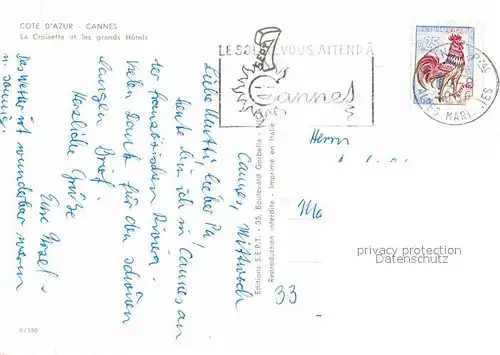 COTE D'AZUR - CANNES
La Croisette et les grands Hôtels
Cannes, Mittwoch
Liebe Mutti, lieber Pa!
Heute bin ich in Cannes an
der französischen Riviera.
Vielen Dank für den schönen
langen Brief.
Herzliche Grüße
Eure
Das Wetter ist wunderbar warm
u. sonnig.
8/330
Editions S.E.P.T. - 35, Boulevard Gorbella - Ni
Reproduction interdite - Imprimé en Italie
LE SOLEIL VOUS ATTEND A
Cannes
0,25
ALPES MARITIMES
Herrn
33
privacy protection
Datenschutz